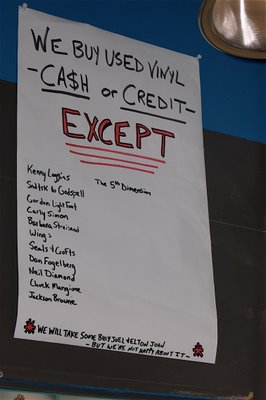 WE BUY USED VINYL
-CA$H OR CREDIT-
EXCEPT
Kenny Loggins
Sndtrk to Godspell
Gordon Lightfoot
Carly Simon
Barbara Streisand
Wings
Seals & Crofts
Dan Fogelberg
Neil Diamond
Chuck Mangione
Jackson Browne
The 5th Dimension
WE WILL TAKE SOME BILLY JOEL & ELTON JOHN
- BUT WE'RE NOT HAPPY ABOUT IT -